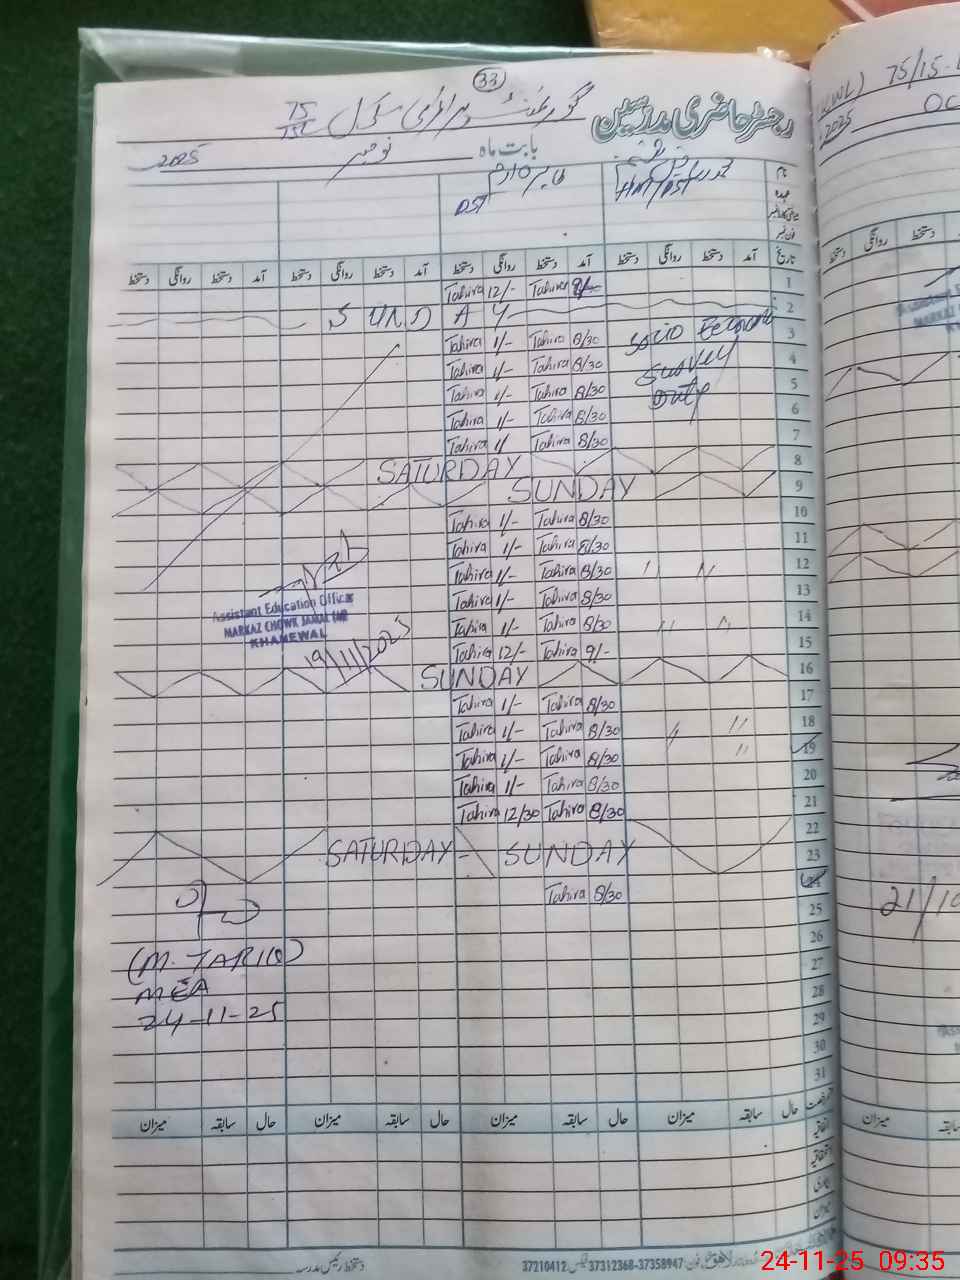 33
رجسٹر حاضری مدرسین
گورنمنٹ پرائمری سکول 75/15L
بابت ماہ نومبر 2025
نام
عہدہ
فون نمبر
DST
تاریخ آمد دستخط روانگی دستخط آمد دستخط روانگی دستخط آمد دستخط روانگی دستخط
1 Tahira 12/- Tahira
2 SUNDAY
3 Tahira 1/- Tahira 8/30 Socio Economic
4 Tahira 1/- Tahira 8/30 Survey
5 Tahira 1/- Tahira 8/30 Duty
6 Tahira 1/- Tahira 8/30
7 Tahira 1/ Tahira 8/30
8 SATURDAY
9 SUNDAY
10 Tahira 1/- Tahira 8/30
11 Tahira 1/- Tahira 8/30
12 Tahira 1/- Tahira 8/30
13 Tahira 1/- Tahira 8/30
14 Tahira 1/- Tahira 8/30
15 Tahira 12/- Tahira 9/-
16 SUNDAY
17 Tahira 1/- Tahira 8/30
18 Tahira 1/- Tahira 8/30
19 Tahira 1/- Tahira 8/30
20 Tahira 1/- Tahira 8/30
21 Tahira 12/30 Tahira 8/30
22
23 SATURDAY - SUNDAY
24 Tahira 8/30
25
26
27
28
29
30
31
Assistant Education Officer
MARKAZ CHOWK JAMAL
KHANEWAL
19/11/2025
(M. TARIQ)
MEA
24-11-25
حال سابقہ میزان حال سابقہ میزان حال سابقہ میزان
اتفاقیہ
استحقاقیہ
بیماری
دستخط رئیس مدرسہ
لاہور فون: 37312368-37358947 فیکس: 37210412
75/15-L
2025
OC
21/10
24-11-25 09:35